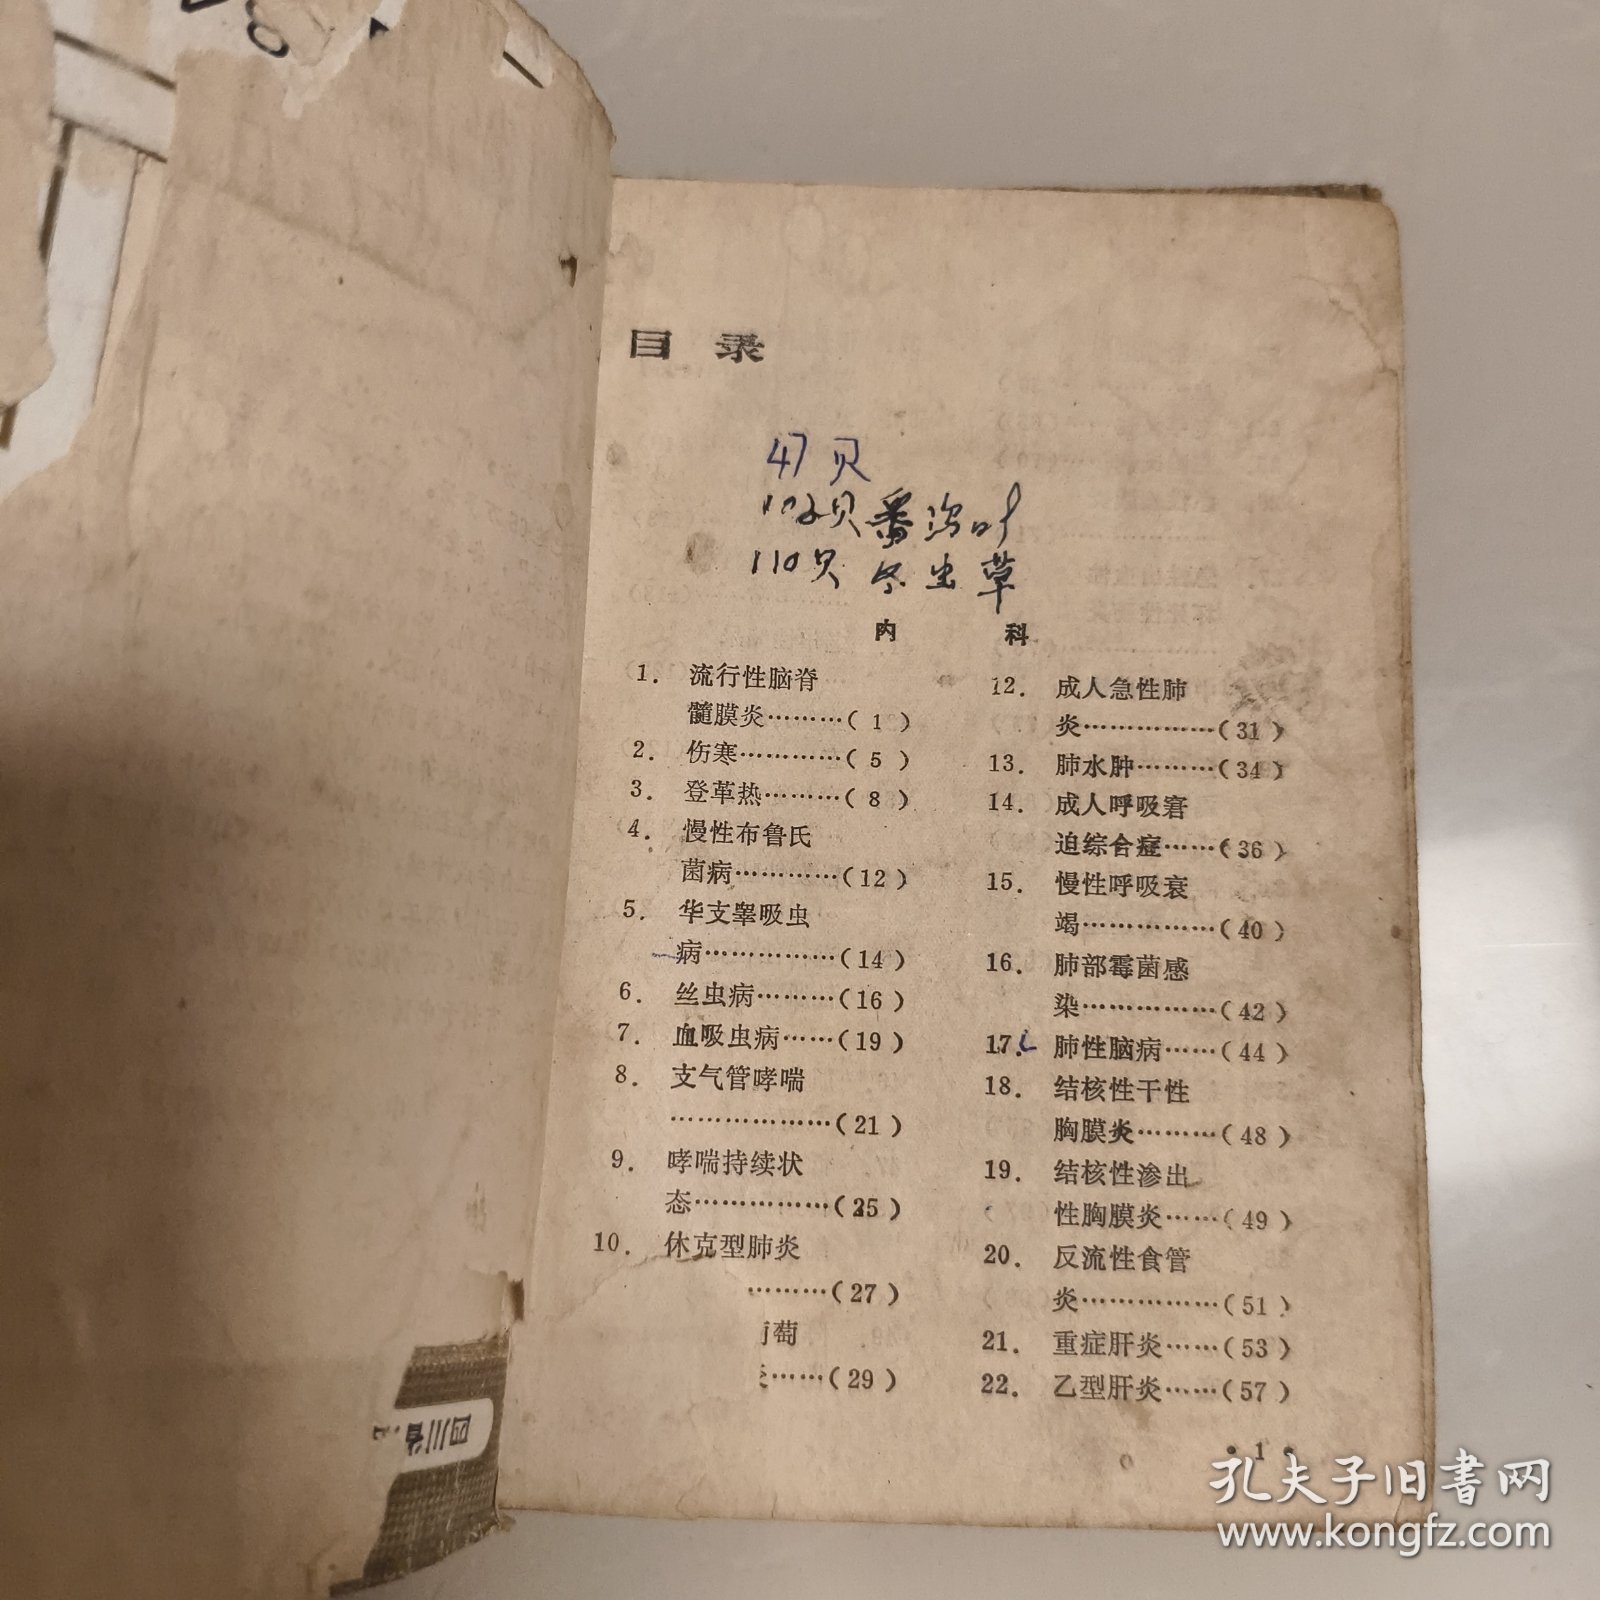 目 录
47页
102页 番泻叶
110页 冬虫草
内 科
1. 流行性脑脊
髓膜炎………( 1 )
2. 伤寒…………( 5 )
3. 登革热………( 8 )
4. 慢性布鲁氏
菌病…………(12)
5. 华支睾吸虫
病……………(14)
6. 丝虫病………(16)
7. 血吸虫病……(19)
8. 支气管哮喘
………………(21)
9. 哮喘持续状
态……………(25)
10. 休克型肺炎
………(27)
萄
……(29)
12. 成人急性肺
炎……………(31)
13. 肺水肿………(34)
14. 成人呼吸窘
迫综合症……(36)
15. 慢性呼吸衰
竭……………(40)
16. 肺部霉菌感
染……………(42)
17. 肺性脑病……(44)
18. 结核性干性
胸膜炎………(48)
19. 结核性渗出
性胸膜炎……(49)
20. 反流性食管
炎……………(51)
21. 重症肝炎……(53)
22. 乙型肝炎……(57)
• 1 •
四川省
孔夫子旧书网
www.kongfz.com